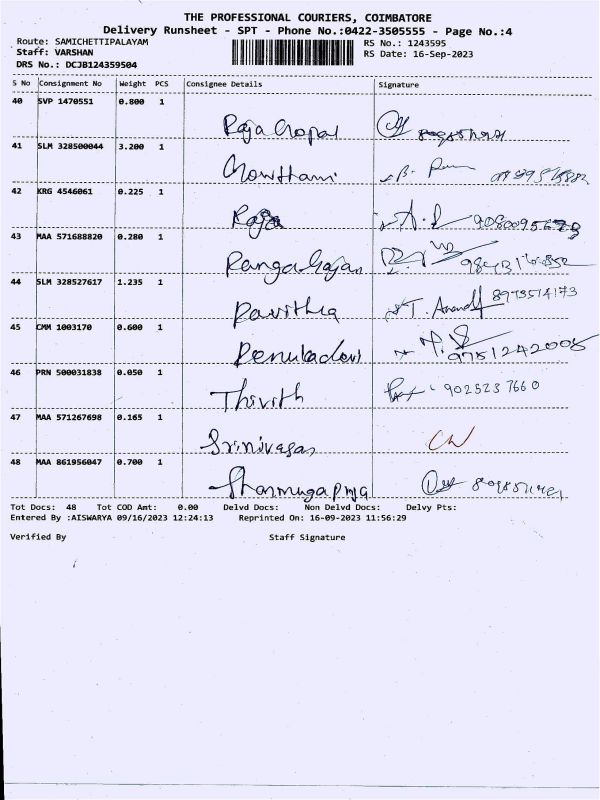 THE PROFESSIONAL COURIERS, COIMBATORE
Delivery Runsheet - SPT - Phone No.:0422-3505555 - Page No.:4
Route: SAMICHETTIPALAYAM RS No.: 1243595
Staff: VARSHAN RS Date: 16-Sep-2023
DRS No.: DCJB124359504
S No Consignment No Weight PCS Consignee Details Signature
40 SVP 1470551 0.800 1
Raja Gopal
41 SLM 328500044 3.200 1
Gowthami
42 KRG 4546061 0.225 1
Raja
43 MAA 571688820 0.280 1
Ranga Rajan
44 SLM 328527617 1.235 1
Pavithra T. Anand 8973574173
45 CMM 1003170 0.600 1
Renukadevi 9751242006
46 PRN 500031838 0.050 1
Thivith 9025237660
47 MAA 571267698 0.165 1
Srinivasan
48 MAA 861956047 0.700 1
Shanmugapriya
Tot Docs: 48 Tot COD Amt: 0.00 Delvd Docs: Non Delvd Docs: Delvy Pts:
Entered By :AISWARYA 09/16/2023 12:24:13 Reprinted On: 16-09-2023 11:56:29
Verified By Staff Signature